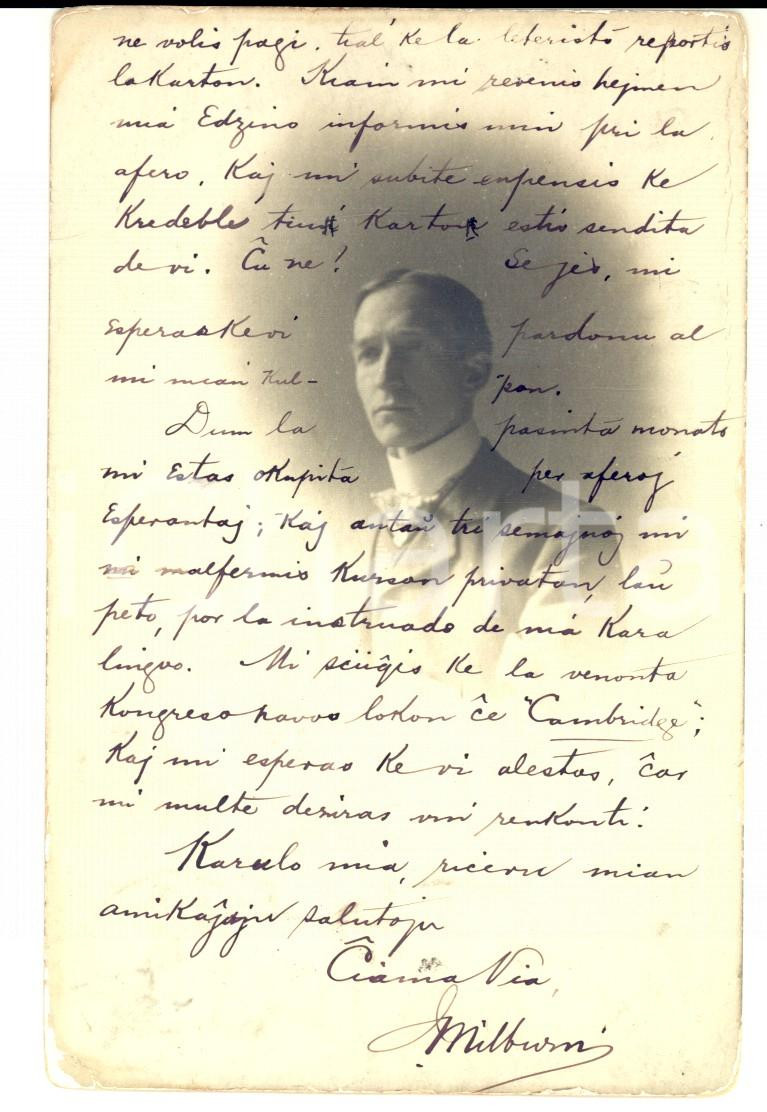 ne volis pagi, tial ke la leteristo reportis
la Karton. Kiam mi revenis hejmen
mia Edzino informis min pri la
afero, Kaj mi subite enpensis Ke
Kredeble tiu Karto estis sendita
de vi. Ĉu ne! Se jes, mi
Esperas Ke vi pardonu al
mi mian Kul- pon.
Dum la pasinta monato
mi Estas okupita per aferoj
Esperantaj; Kaj antaŭ tri semajnoj mi
mi malfermis Kurson privatan, laŭ
peto, por la instruado de nia Kara
lingvo. Mi sciiĝis Ke la venonta
Kongreso havos lokon ĉe "Cambridge";
Kaj mi esperas Ke vi alestos, ĉar
mi multe deziras vin renkonti.
Karulo mia, ricevu mian
amikaĵajn salutojn
Ĉiama Via,
J Milburn